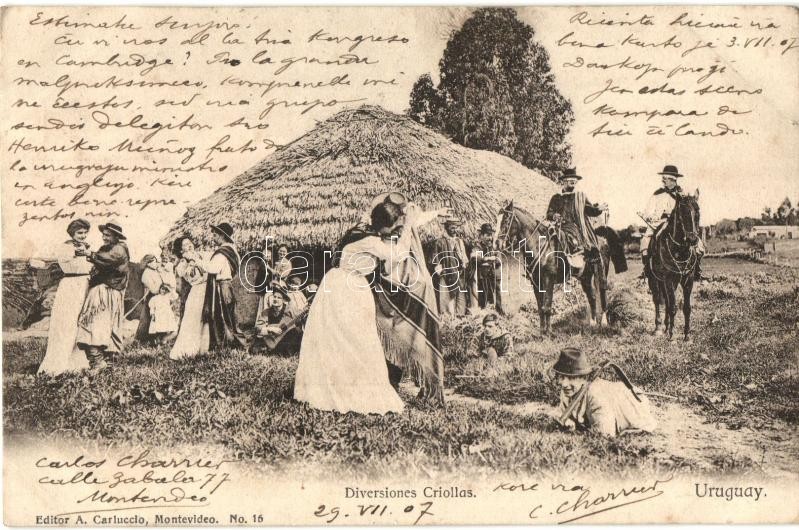 Estimate senjoro.
Ĉu vi iros al la tria Kongreso
en Cambridge? Pro la granda
malproksimeco, kompreneble mi
ne ĉeestos, sed nia grupo
sendis delegiton, sro
Henriko Muñoz frato de
la urugvaja ministro
en anglujo. Kiu
certe bone repre-
zentos nin.
Ricevita hieraŭ via
bona karto je 3.VII.07
Dankon pro ĝi
kompara de
Carlos Charrier
calle Zabala 77
Montevideo
Diversiones Criollas.
29.VII.07
Kore via
C. Charrier
Uruguay.
Editor A. Carluccio, Montevideo. No. 16
darabanth